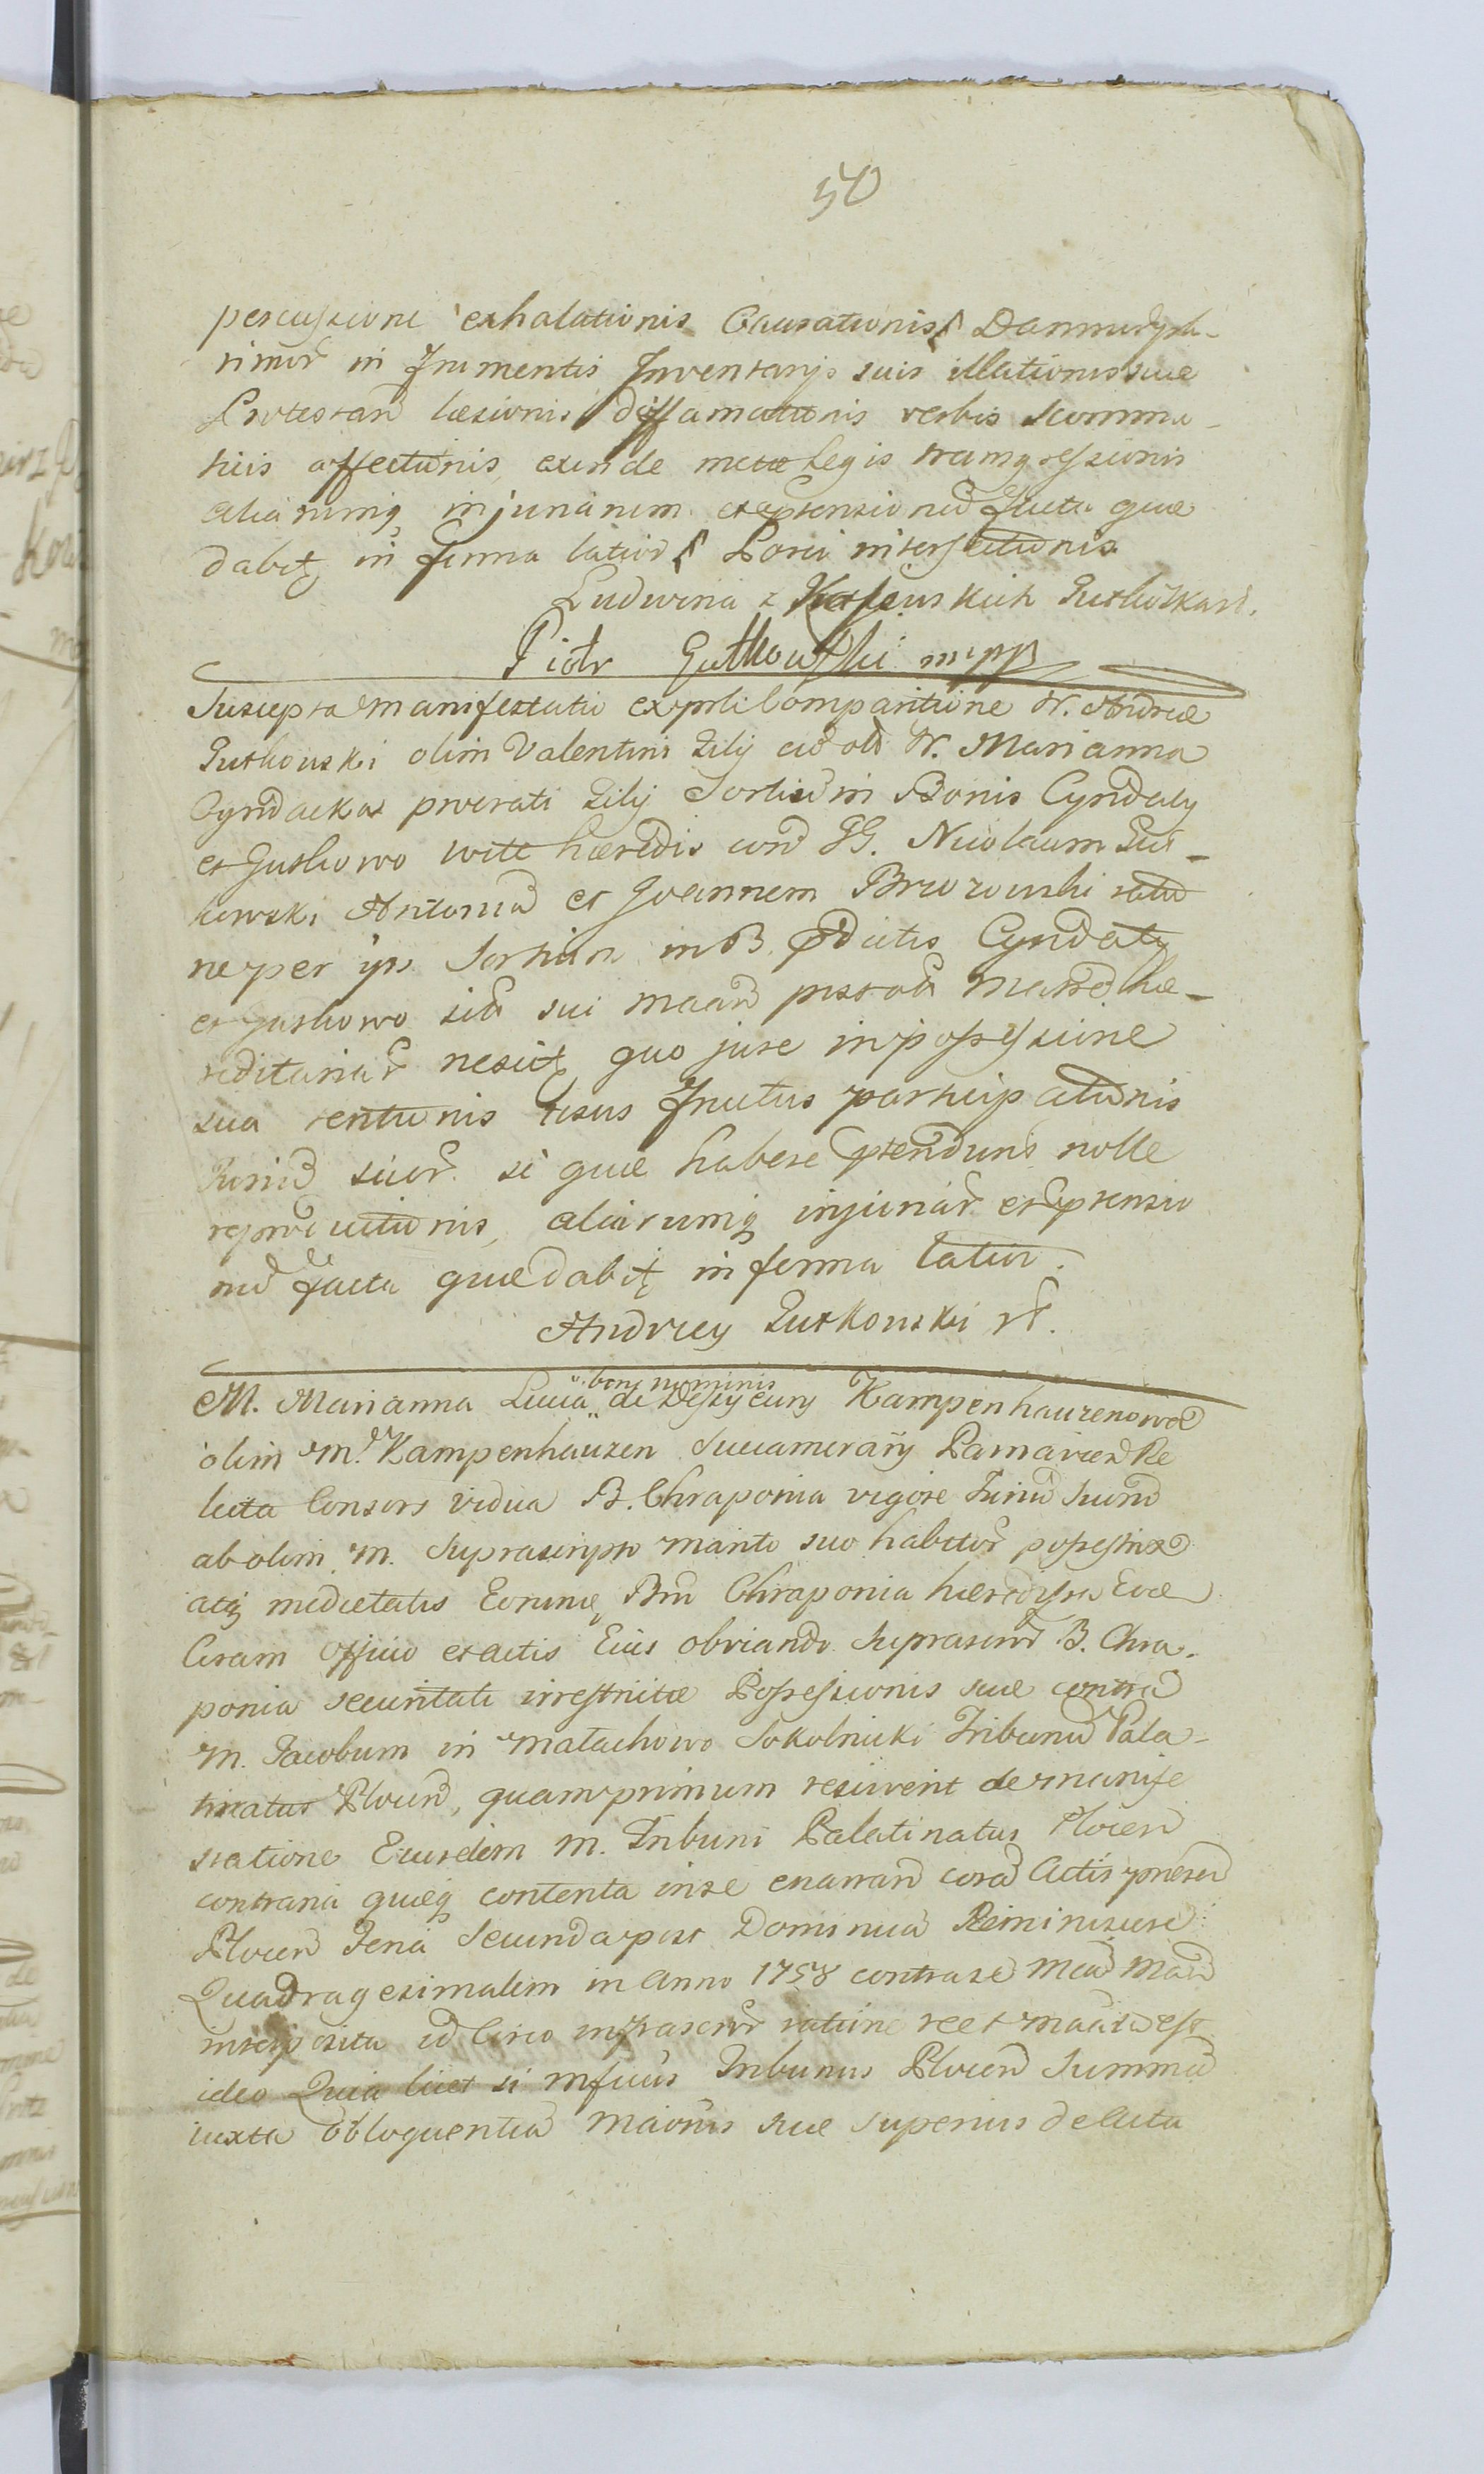 50
percussione exhalationis Causationis Damnor plu-
rimor in frumentis Inventarijs suis illationis suae
Protestan laesionis diffamationis verbis scomma-
ticis affectionis exinde metae Legis transgressionis
aliarumq injuriarum et praetensionu facta quae
dabitq in forma latiori Porci interfectionis
Ludwina z Gutkowska
Piotr Gutkowski mpp
Suscepta manifestatio ex prsli Comparitione N. Andreae
Gutkowski olim Valentini filij ad olim N. Marianna
Cyndacka procreati filij Sortium in Bonis Cyndaty
et Gutkowo haeredis con GG. Nicolaum Gut-
kowski Antonium et Joannem Brzozowski ratio
ne per ipsos Sortium in B. pdictis Cyndaty
et Gutkowo sitar sui maan Matre hae-
reditariar nescitq quo jure in possessione
sua tentionis usus fructus participationis
Juriu suor si quae habere ptendunt nolle
reproductionis, aliarumq injuriar et praetensio
nu facta quae dabitq in forma latior.
Andrzey Gutkowski
M. Marianna Lucia boni nominis de Kampenhauzenowa
olim M. Kampenhauzen Succamerarij Parnavien Re
licta Consors vidua B. Chraponia vigore Juriu Suoru
ab olim M. Suprascripto marito suo habitor possestrix
atq medietatis Eorumq Bnr Chraponia haeredissa Eoe
Coram Officio et actis Eius obviando Suprascript B. Chra-
ponia securitati irrestrictae Possessionis suae contra
M. Jacobum in Małachowo Sokolnicki Tribunu Pala-
tinatus Plocen, quam primum resciverit de manife
statione Eiusdem M. Tribuni Palatinatus Plocen
contraria quaeq contenta in se enarran cora Actis praesen
Plocen Feria Secunda post Dominica Reminiscere
Quadragesimalem in Anno 1758 contra se Mcam Man
interposita id Circo infrascript ratione reet manda est
ideo Quia licet si Mficus Tribunus Plocen Summa
iuxta obloquentia maonis suae superius delata